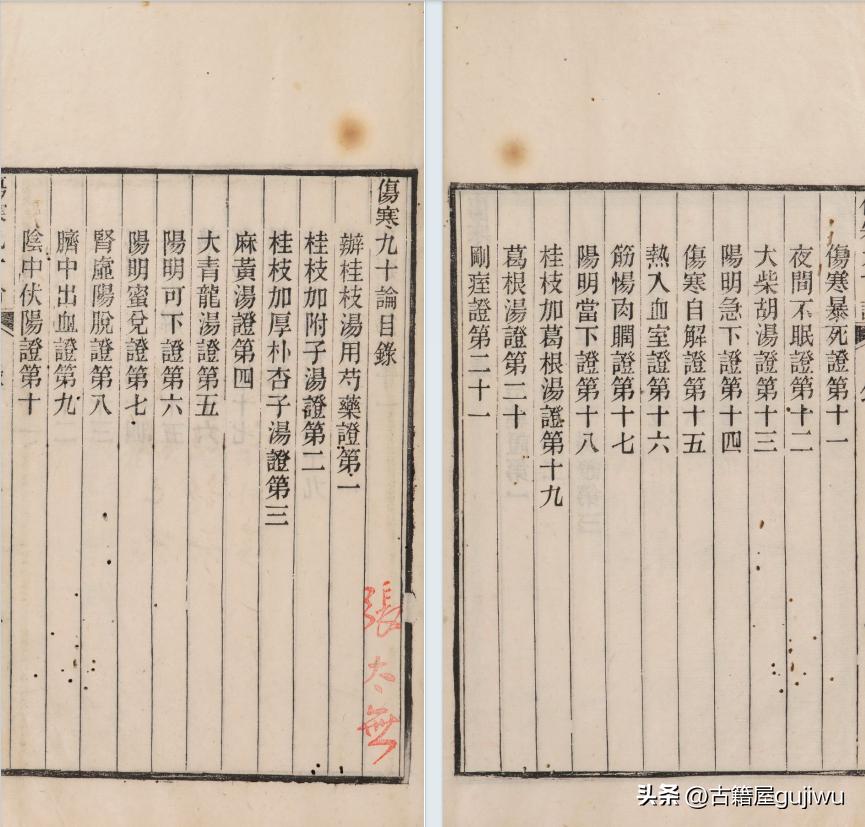 傷寒九十論目錄
辯桂枝湯用芍藥證第一
桂枝加附子湯證第二
桂枝加厚朴杏子湯證第三
麻黃湯證第四
大青龍湯證第五
陽明可下證第六
陽明蜜兌證第七
腎虛陽脫證第八
臍中出血證第九
陰中伏陽證第十
傷寒暴死證第十一
夜間不眠證第十二
大柴胡湯證第十三
陽明急下證第十四
傷寒自解證第十五
熱入血室證第十六
筋惕肉瞤證第十七
陽明當下證第十八
桂枝加葛根湯證第十九
葛根湯證第二十
剛痓證第二十一
張大無
头条 @古籍屋gujiwu